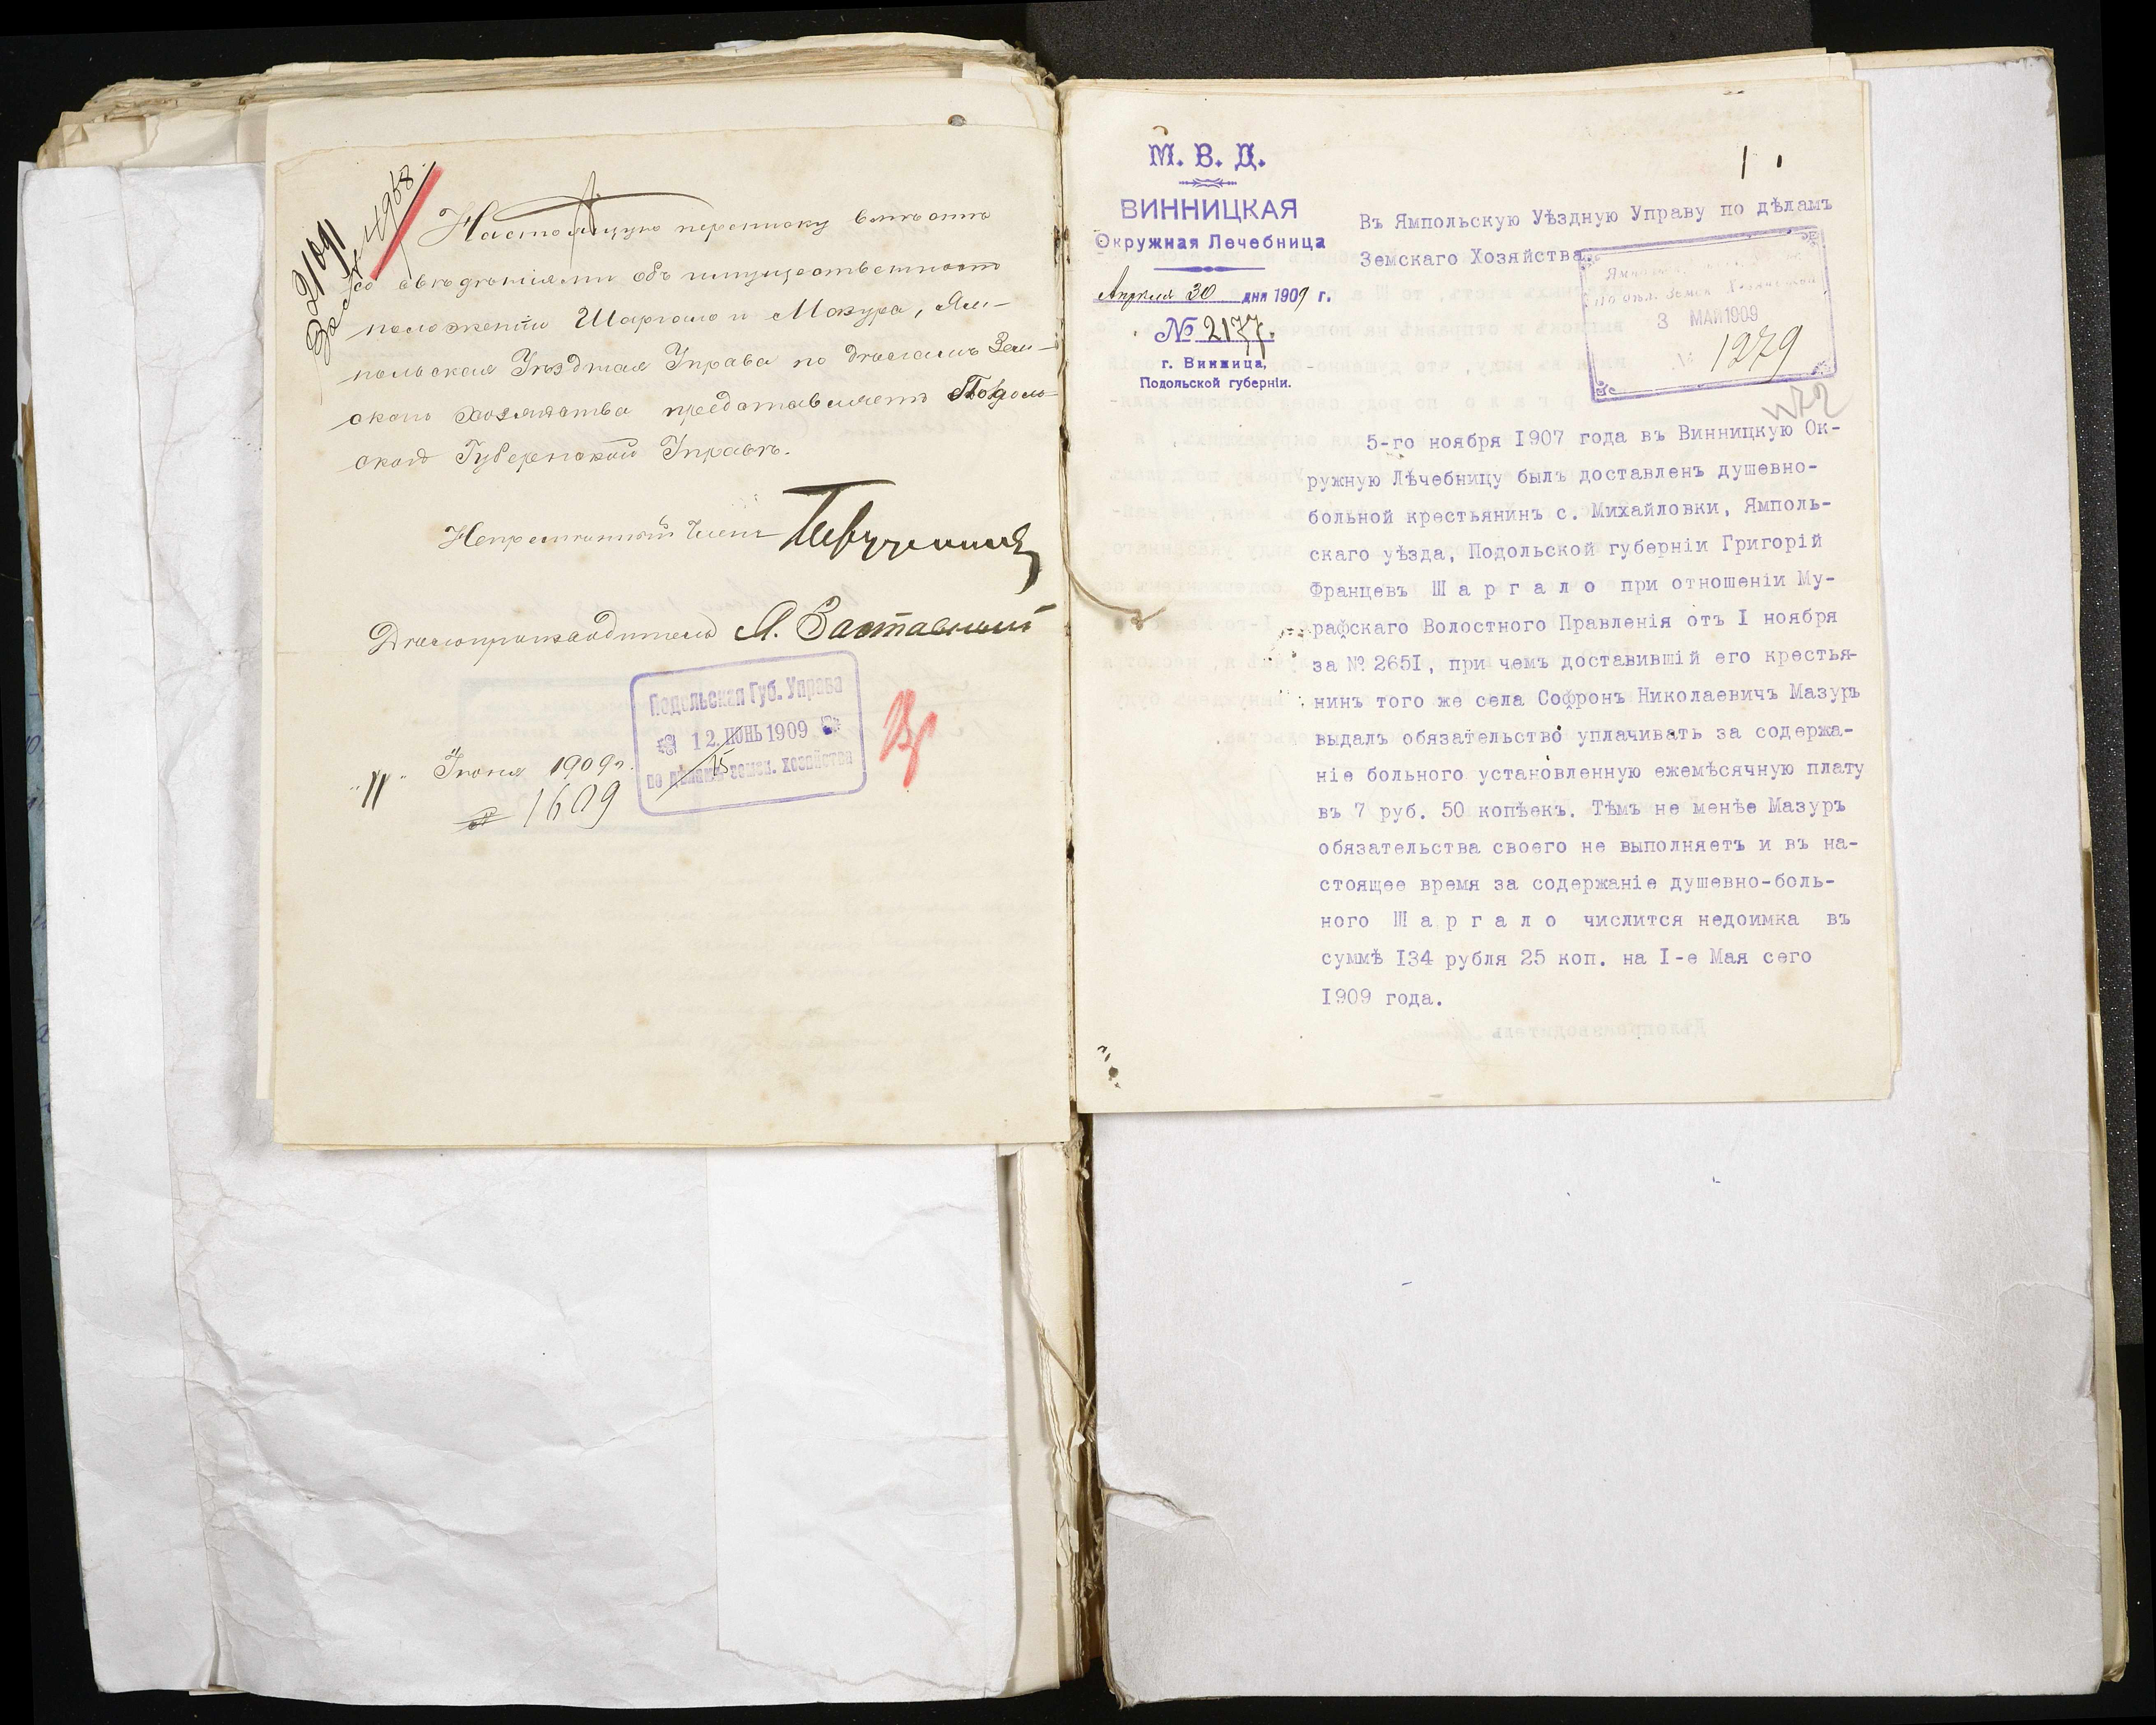 № 4968
Настоящую переписку вмѣстѣ
со свѣдѣніями объ имущественномъ
положеніи Шаргало и Мазура, Ям-
польская Уѣздная Управа по дѣламъ Зем-
скаго Хозяйства представляетъ Подоль-
ской Губернской Управѣ.
Непремѣнный Членъ
Дѣлопроизводитель А. Заставный
Подольская Губ. Управа
12 ІЮНЬ 1909
по дѣламъ земск. хозяйства
"11" Іюня 1909 г.
№ 1609
М. В. Д.
ВИННИЦКАЯ
Окружная Лечебница
Апрѣля 30 дня 1909 г.
№ 2177.
г. Винница,
Подольской губерніи.
1
Въ Ямпольскую Уѣздную Управу по дѣламъ
Земскаго Хозяйства
по дѣл. Земск. Хозяйства
3 МАЯ 1909
№ 1279
5-го ноября I907 года въ Винницкую Ок-
ружную Лѣчебницу былъ доставленъ душевно-
больной крестьянинъ с. Михайловки, Ямполь-
скаго уѣзда, Подольской губерніи Григорій
Францевъ Ш а р г а л о при отношеніи Му-
рафскаго Волостного Правленія отъ I ноября
за № 265I, при чемъ доставившій его крестья-
нинъ того же села Софронъ Николаевичъ Мазуръ
выдалъ обязательство уплачивать за содержа-
ніе больного установленную ежемѣсячную плату
въ 7 руб. 50 копѣекъ. Тѣмъ не менѣе Мазуръ
обязательства своего не выполняетъ и въ на-
стоящее время за содержаніе душевно-боль-
ного Ш а р г а л о числится недоимка въ
суммѣ I34 рубля 25 коп. на I-е Мая сего
I909 года.